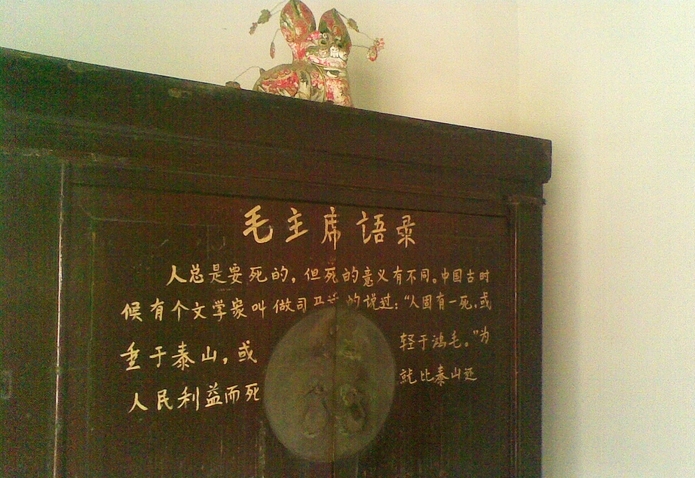 毛主席語录
人总是要死的，但死的意义有不同。中国古时
候有个文学家叫做司马迁的说过：“人固有一死，或
重于泰山，或轻于鸿毛。”为
人民利益而死就比泰山还